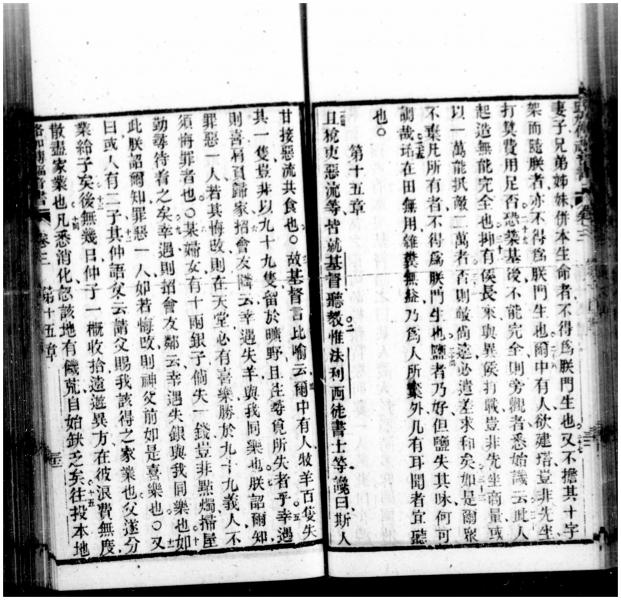 妻子兄弟姊妹併本生命者不得爲朕門生也又不擔其十字
架而隨朕者亦不得爲朕門生也爾中有人欲建塔豈非先坐
打算費用足否恐築基後不能完全則旁觀者悉始譏云此人
起造無能完全也抑有侯長來與異侯打戰豈非先坐商量或
以一萬能抵敵二萬者否則敵尚遠必遣差求和矣如是爾衆
不棄凡所有者不得爲朕門生也鹽者乃好但鹽失其味何可
調哉珤在田無用雜糞無益乃爲人所棄外凡有耳聞者宜聽
也
第十五章
且稅吏惡流等皆就基督聽教惟法利西徒書士等譏曰斯人
甘接惡流共食也○故基督言比喻云爾中有人牧羊百隻失
其一隻豈非以九十九隻留於曠野且往尋覓所失者乎幸遇
則盡肩負歸家招會友隣云幸遇失羊與我同樂也朕詔爾知
罪惡一人若其悔改則在天堂必有喜樂勝於九十九義人不
須悔罪者也○某婦女有十兩銀子倘失一錢豈非點燭掃屋
勤尋待着之矣幸遇則招會友鄰云幸遇失銀與我同樂也如
此朕詔爾知罪惡一人如若悔改則神父前如是喜樂也○又
曰或人有二子其仲語父云請父賜我該得之家業也父遂分
業給子矣後無幾日仲子一概收拾遠遊異方在彼浪費無度
散盡家業也凡悉消化忽該地有饑荒自始缺乏矣往投本地
卷三 第十五章